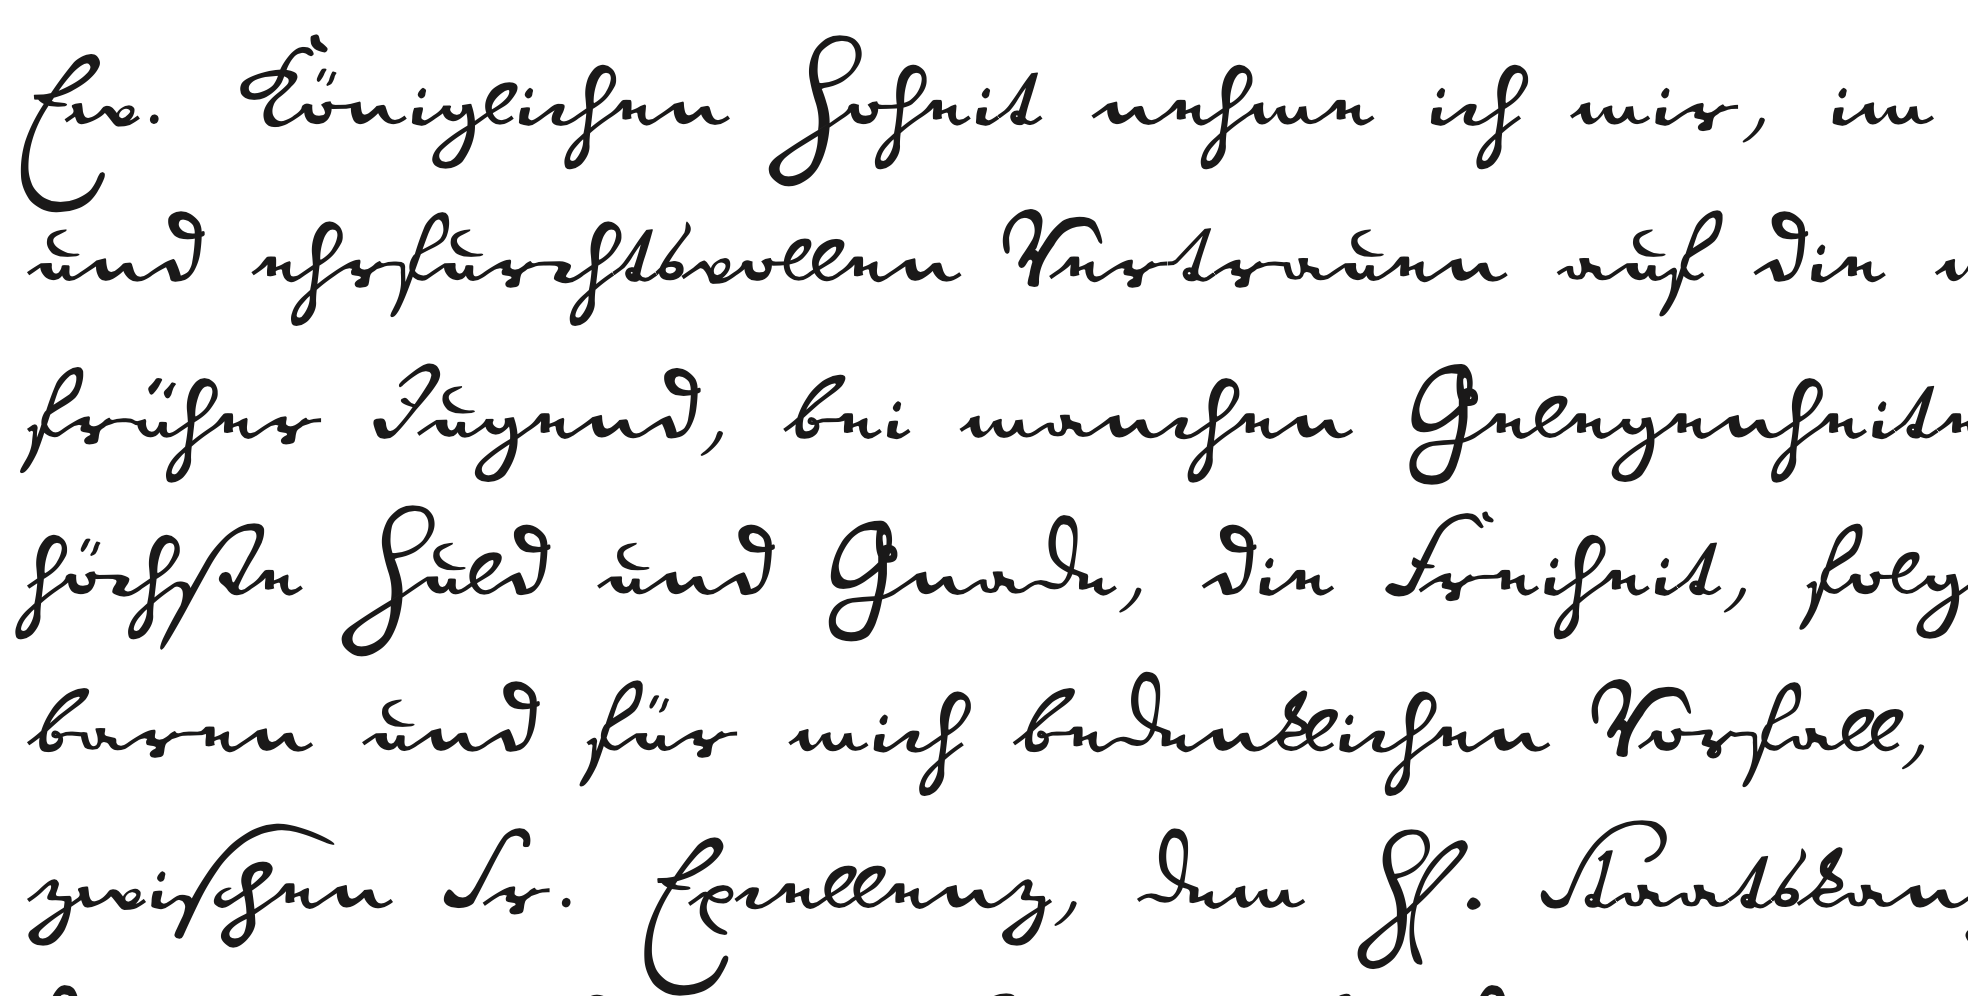 Ew. Königlichen Hoheit nehme ich mir, im
und ehrfurchtsvollen Vertrauen auf die
früher Jugend, bei manchen Gelegenheite
höchste Huld und Gnade, die Freiheit, folg
baren und für mich bedenklichen Vorfall,
zwischen Sr. Excellenz, dem H. Staatskan